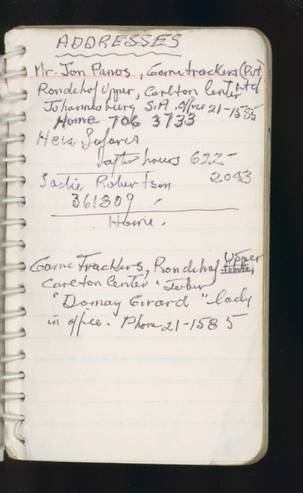 ADDRESSES
Mr. Jon Panos, Gametrackers (Pvt) Ltd
Rondehof Upper, Carlton Center
Johannesburg S.A. office 21-1585
Home 706 3733
Hers Safaris
after hours 622-
2043
Sadie Robertson
361809
Home.
Game Trackers, Rondehof Upper
Carlton Center
"Domay Girard" lady
in office. Phone 21-1585